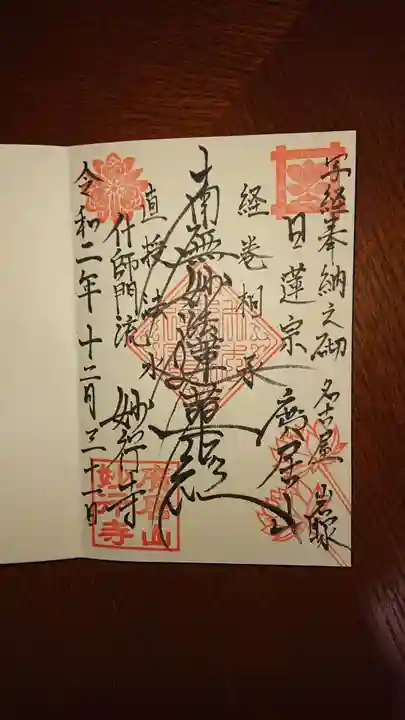 写経奉納之砌 名古屋 岩塚
日蓮宗 廣居山
経巻相承
南無妙法蓮華経
直授法水
什師門流 妙行寺
令和二年十二月三十一日
妙行寺